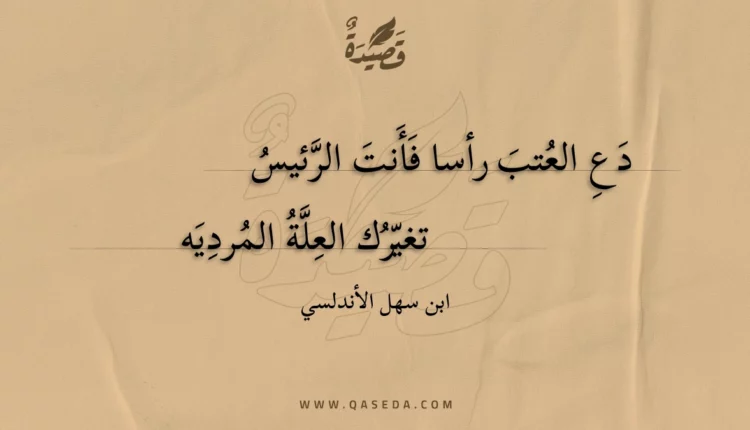 قَصِيدَةٌ
دَعِ العُتبَ رأسا فَأَنتَ الرَّئيسُ
تغيّرُك العِلَّةُ المُردِيَه
ابن سهل الأندلسي
WWW.QASEDA.COM